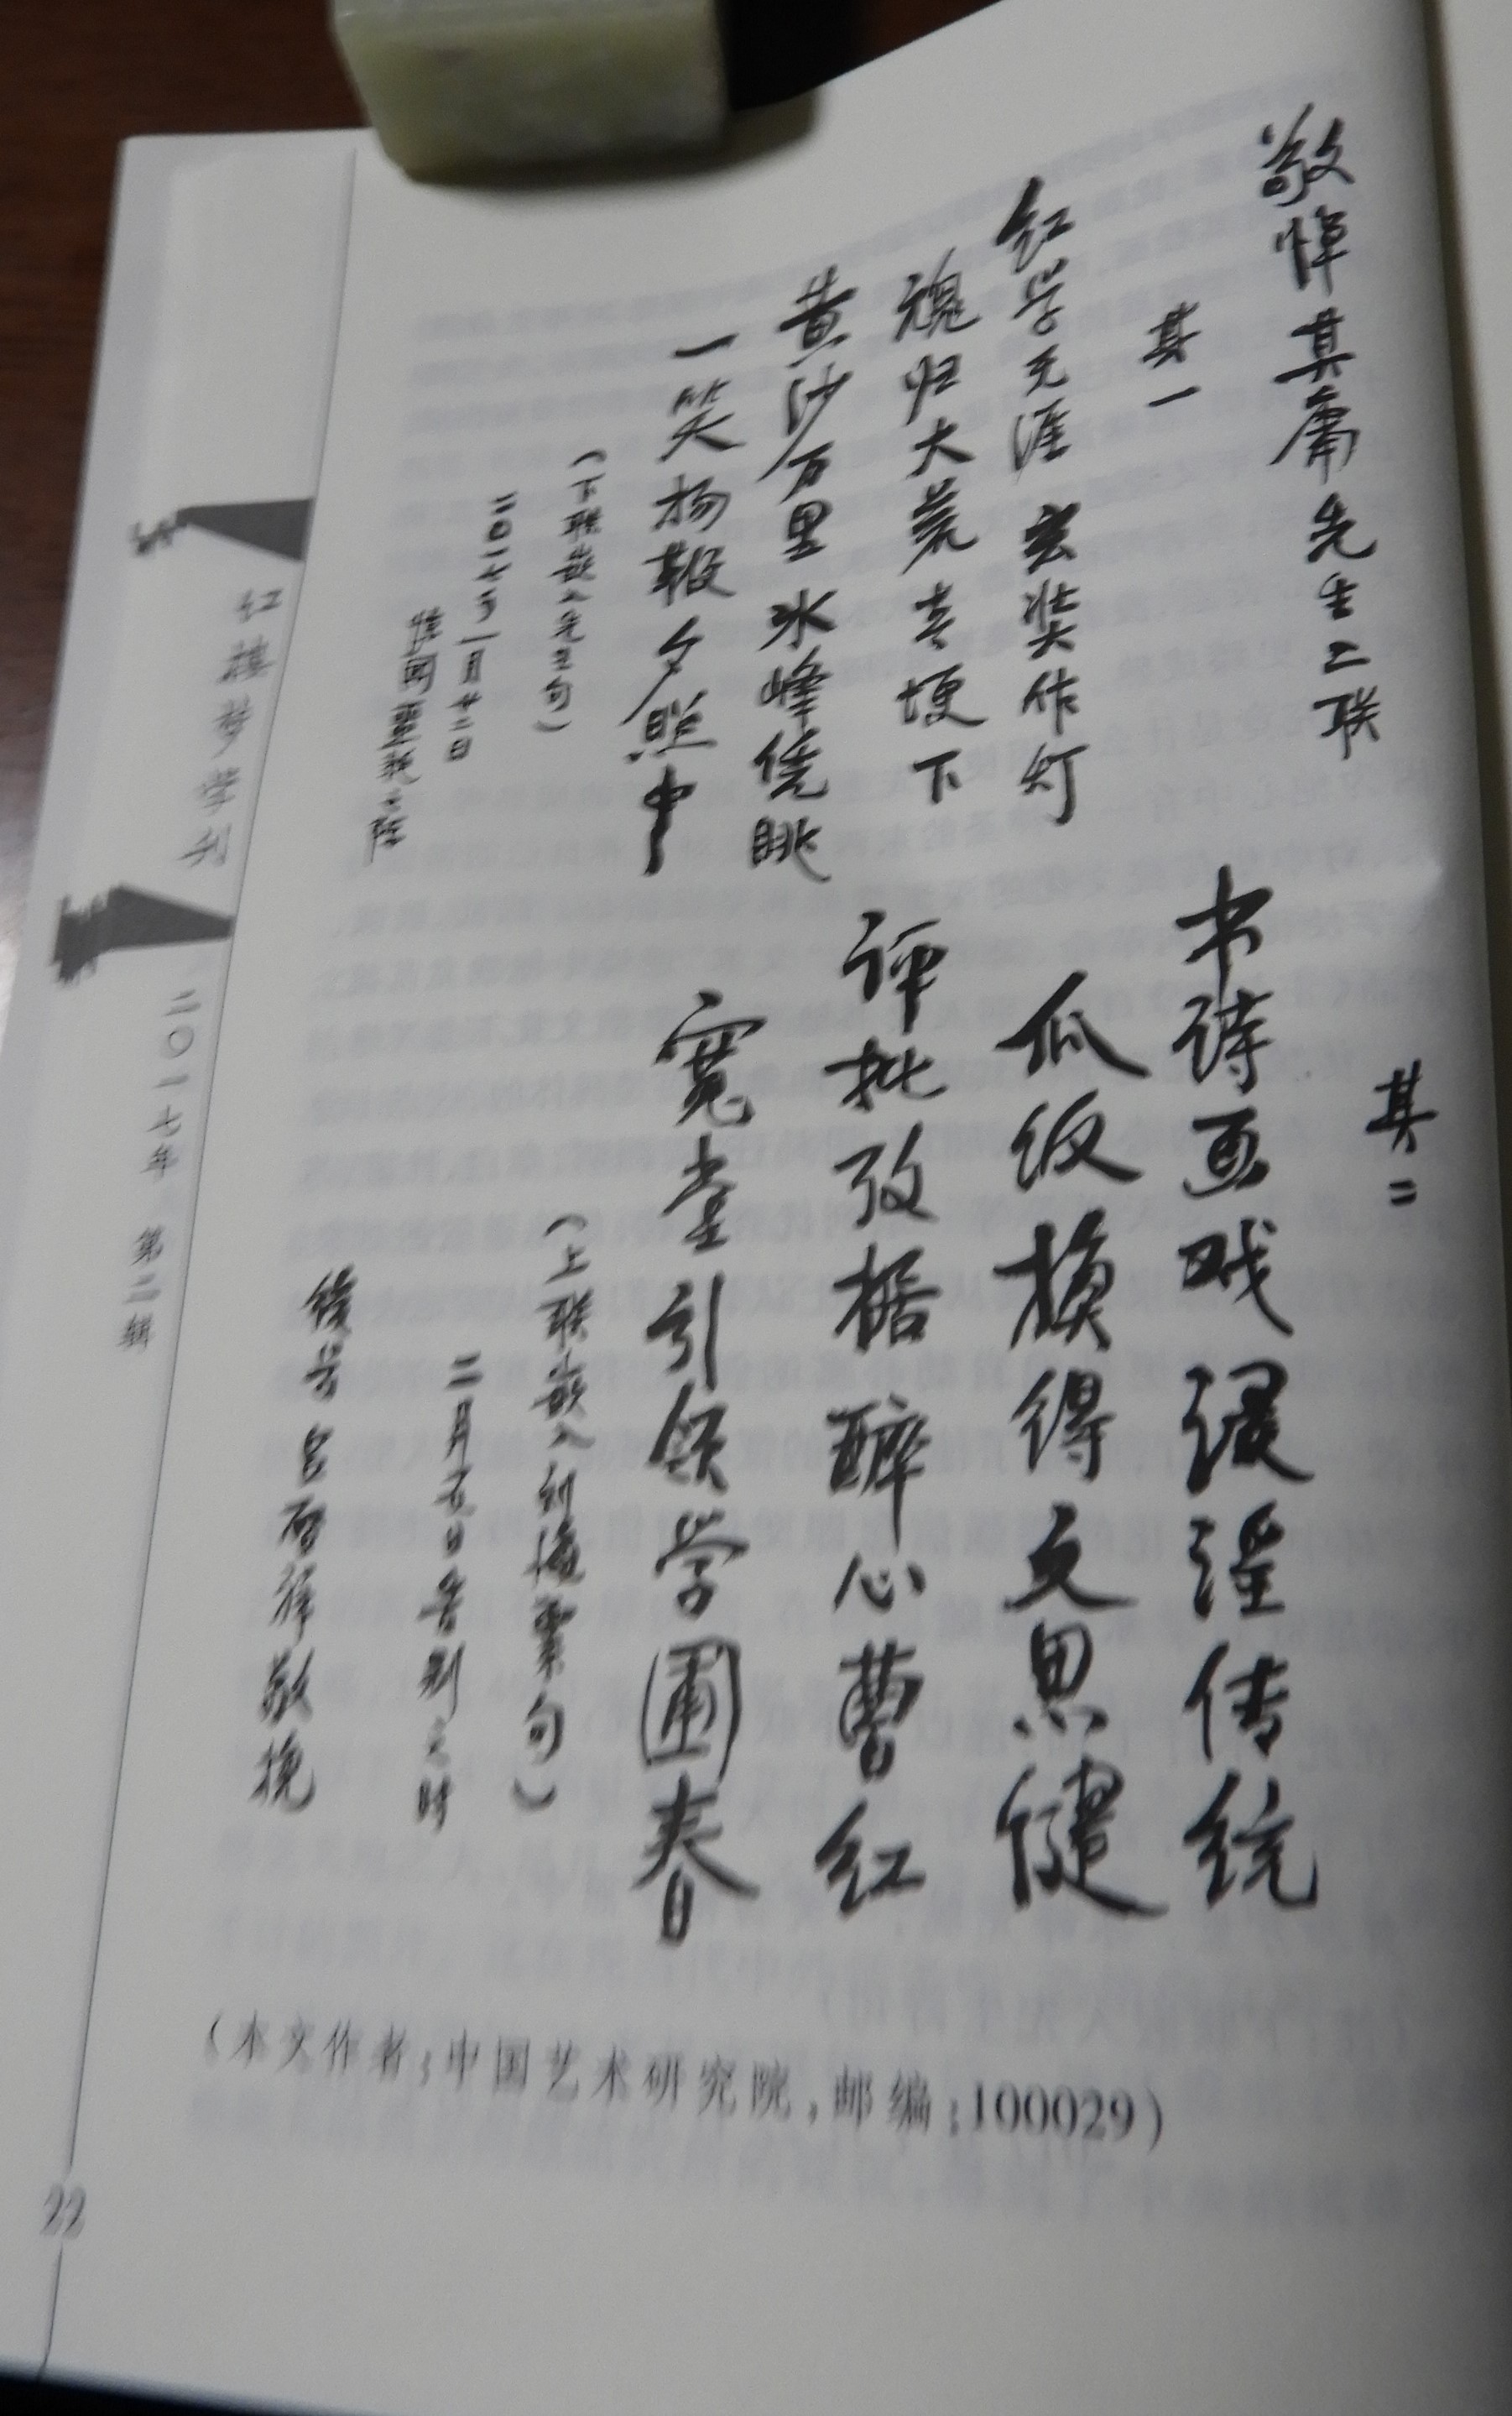 敬悼其庸先生二联
其一
红学无涯 玄奘作灯
魂归大荒青埂下
黄沙万里 冰峰侥眺
一笑扬鞭夕照中
（下联嵌入先生句）
二〇一七年一月廿二日
其二
书诗画戏浸淫传统
瓜饭换得文思健
评批考据醉心曹红
宽堂引领学圃春
（上联嵌入刘海粟句）
二月五日告别之时
后学吕启祥敬挽
（本文作者：中国艺术研究院，邮编：100029）
红楼梦学刊
二〇一七年 第二辑
22